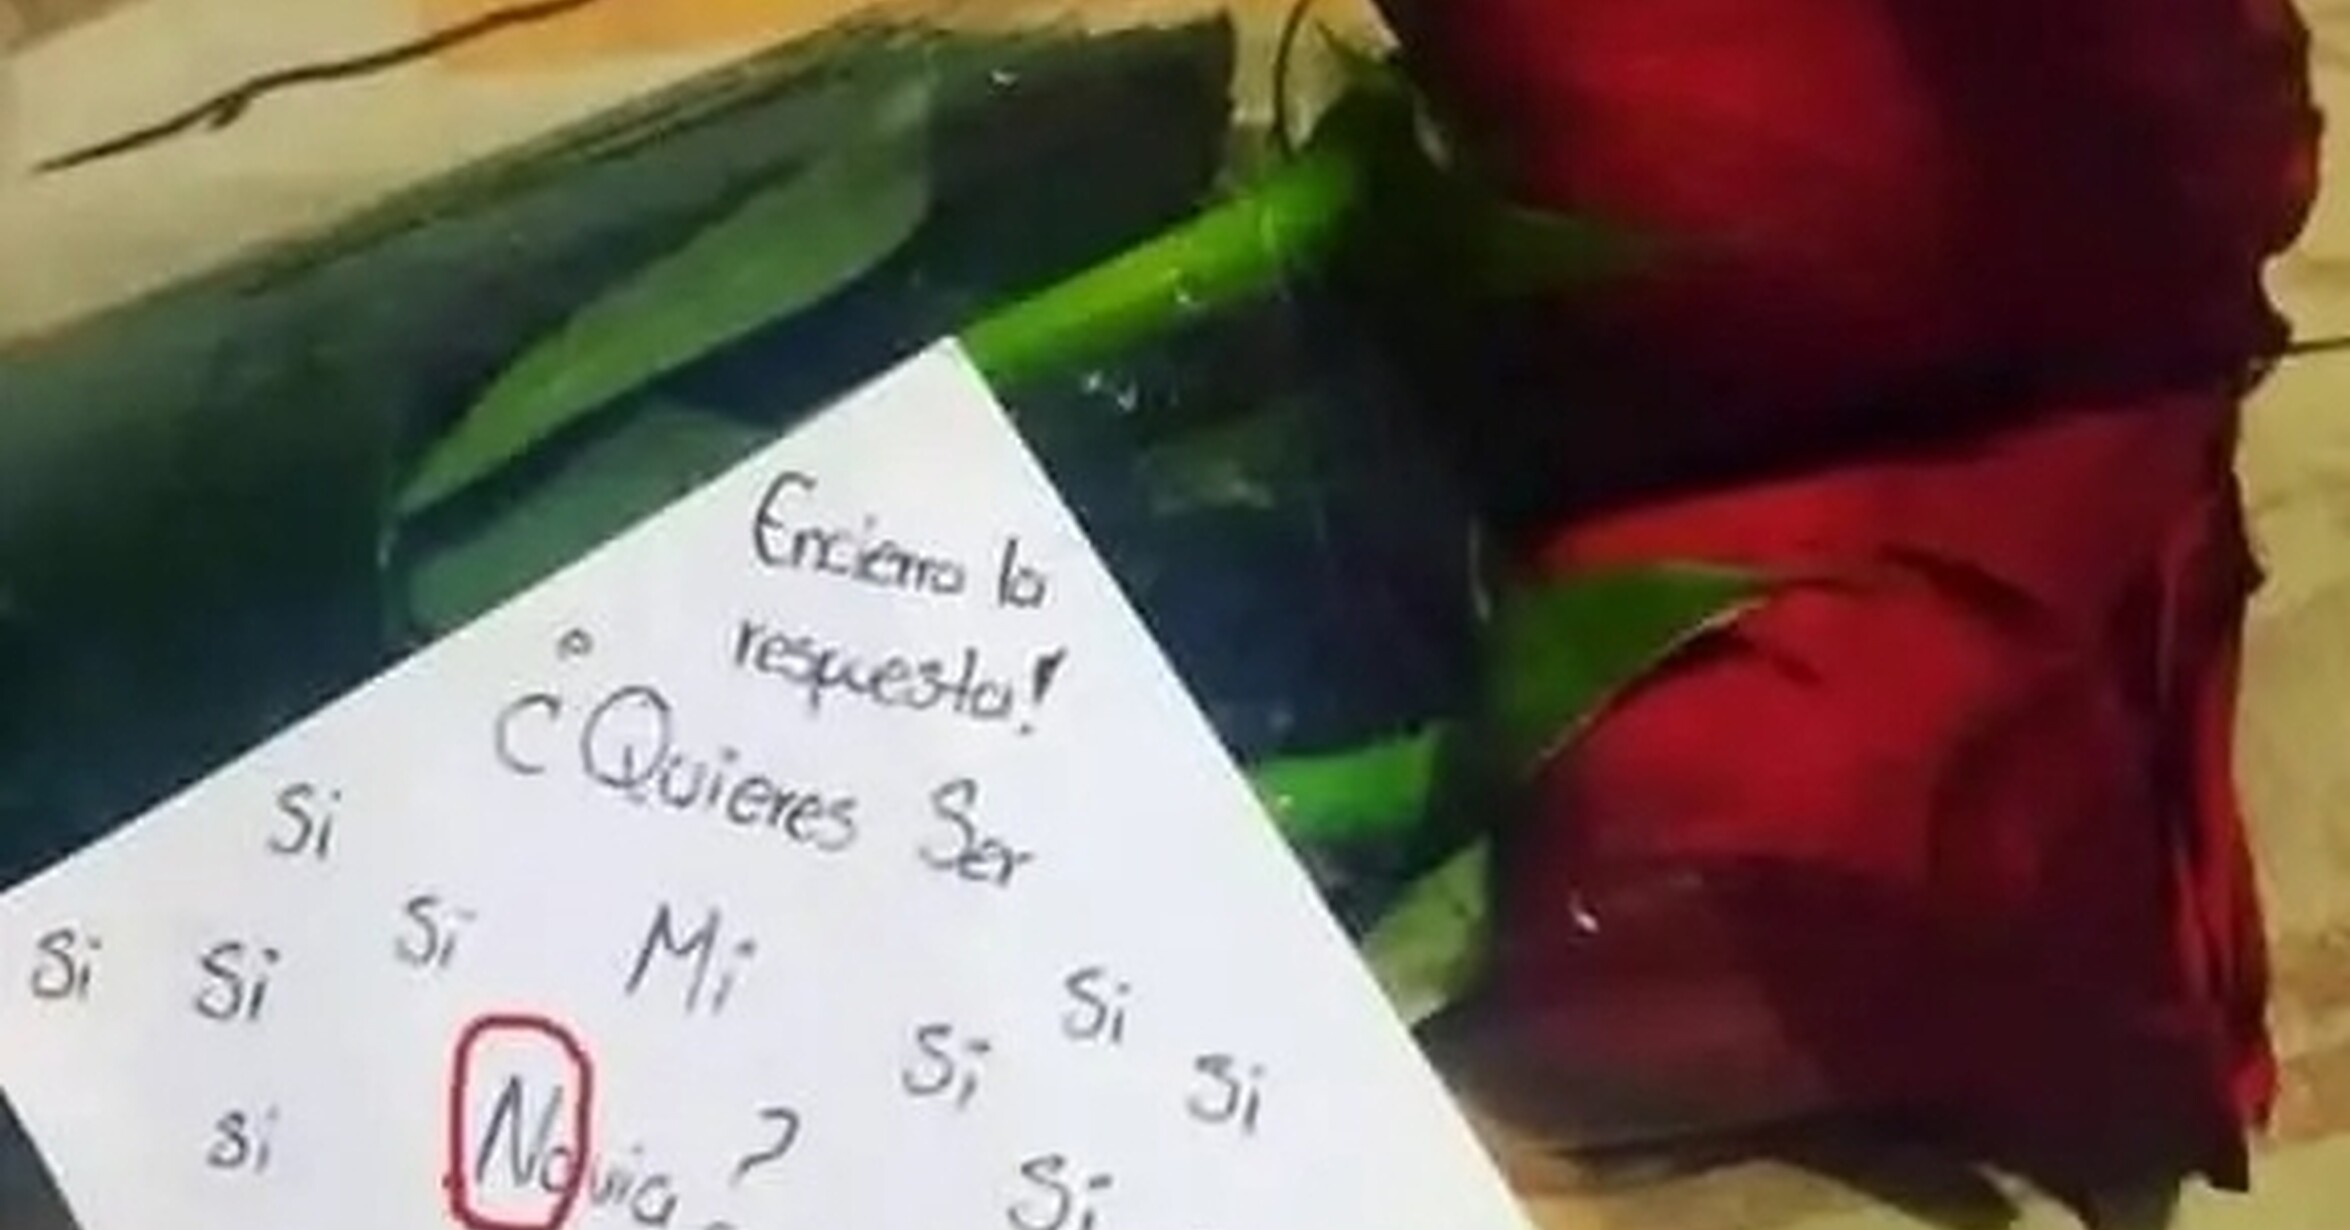 Encierra la
respuesta!
¿Quieres Ser
Mi
Novia?
Si
Si
Si
Si
Si
Si
Si
Si
Si